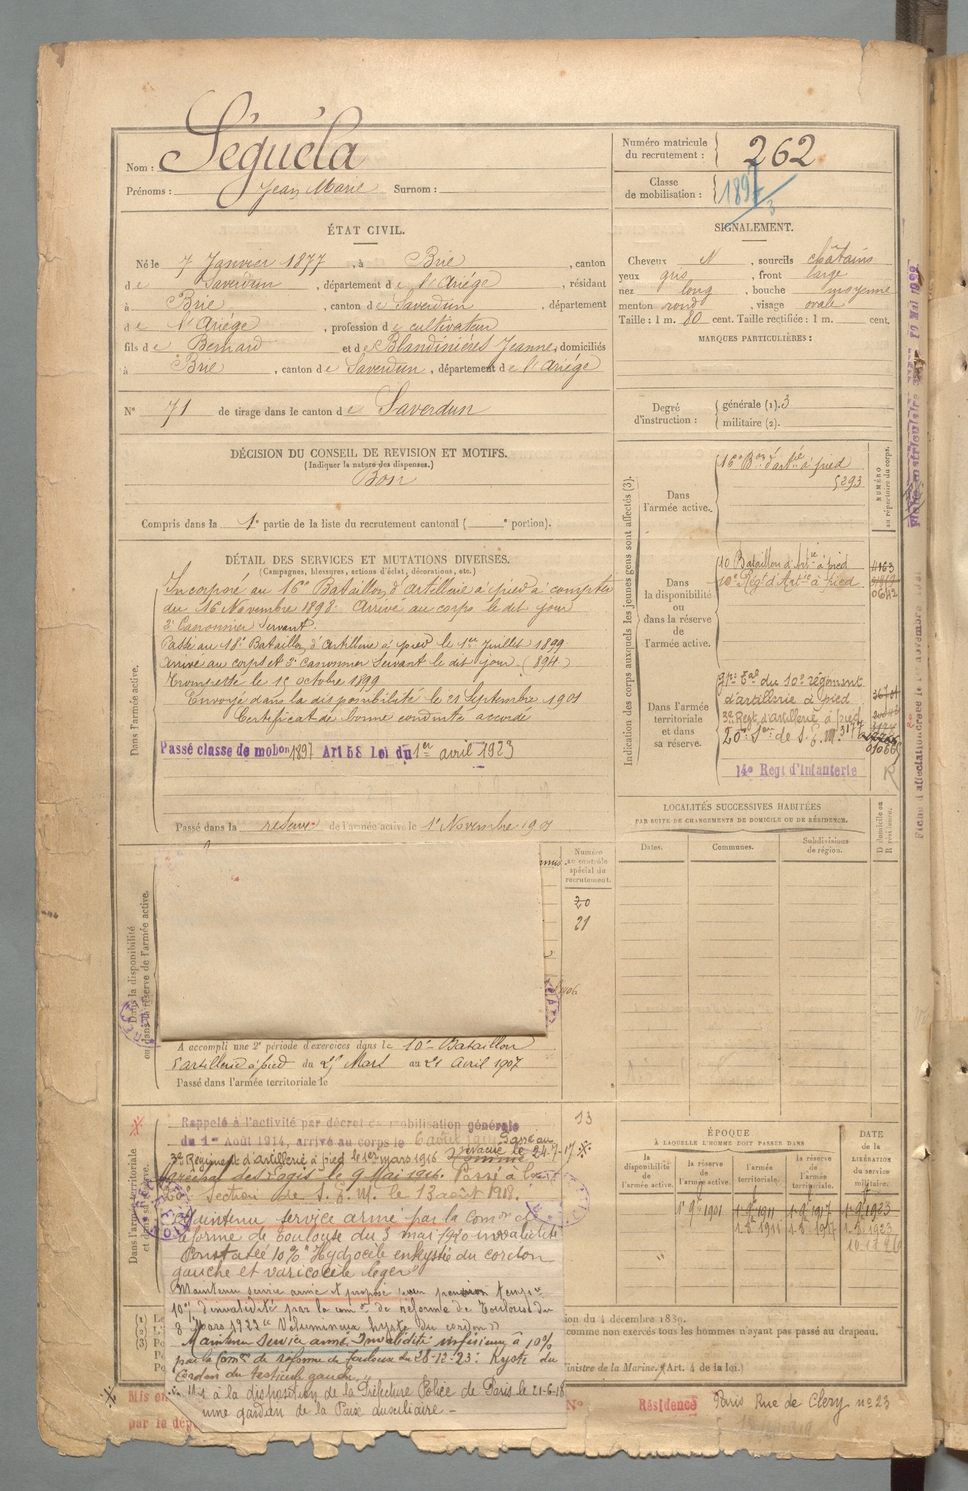 Nom : Séguéla
Prénoms : Jean Marie Surnom :
Numéro matricule du recrutement : 262
Classe de mobilisation : 1897
ÉTAT CIVIL.
Né le 7 Janvier 1877, à Brie, canton
de Saverdun, département de l'Ariège, résidant
à Brie, canton de Saverdun, département
de l'Ariège, profession de cultivateur
fils de Bernard et de Blandinières Jeanne, domiciliés
à Brie, canton de Saverdun, département de l'Ariège
N° 71 de tirage dans le canton de Saverdun
SIGNALEMENT.
Cheveux N, sourcils châtains
yeux gris, front large
nez long, bouche moyenne
menton rond, visage ovale
Taille : 1 m. 80 cent. Taille rectifiée : 1 m. cent.
MARQUES PARTICULIÈRES :
Degré d'instruction : générale (1). 3
militaire (2).
DÉCISION DU CONSEIL DE REVISION ET MOTIFS.
(Indiquer la nature des dispenses.)
Bon
Compris dans la 1e partie de la liste du recrutement cantonal ( e portion).
DÉTAIL DES SERVICES ET MUTATIONS DIVERSES.
(Campagnes, blessures, actions d'éclat, décorations, etc.)
Dans l'armée active.
Incorporé au 16e Bataillon d'Artillerie à pied à compter
du 16 Novembre 1898. Arrivé au corps le dit jour
2e Canonnier Servant.
Passé au 18e Bataillon d'Artillerie à pied le 1er Juillet 1899
Arrivé au corps et 2e Canonnier Servant le dit jour (894)
Trompette le 15 octobre 1899
Envoyé dans la disponibilité le 21 Septembre 1901
Certificat de bonne conduite accordé
Passé classe de mobon 1897 Art 58 Loi du 1er avril 1923
Passé dans la réserve de l'armée active le 1er Novembre 1901
Indication des corps auxquels les jeunes gens sont affectés (3).
NUMÉRO au répertoire du corps.
Dans l'armée active.
16e Bon d'artie à pied
5293
Dans la disponibilité ou dans la réserve de l'armée active.
10 Bataillon d'Artie à pied
10e Régt d'Artie à pied
0642
Dans l'armée territoriale et dans sa réserve.
gpe Tal du 10e régiment
d'artillerie à pied
3e Regt d'artillerie à pied
20e Son de S.F.M. 3177
14e Regt d'Infanterie
R
LOCALITÉS SUCCESSIVES HABITÉES
PAR SUITE DE CHANGEMENTS DE DOMICILE OU DE RÉSIDENCE.
Dates. Communes. Subdivisions de région. D domicile ou R résidence.
Numéro au contrôle spécial du recrutement.
20
21
Dans la disponibilité ou dans la réserve de l'armée active.
A accompli une 2e période d'exercices dans le 10e Bataillon
d'artillerie à pied du 25 Mars au 21 Avril 1907
Passé dans l'armée territoriale le
13
Dans l'armée territoriale et dans sa réserve.
Rappelé à l'activité par décret de mobilisation générale
du 1er Août 1914, arrivé au corps le 6 août 1914 Passé au
3e Régiment d'artillerie à pied le 1er mars 1916
maréchal des logis le 9 Mai 1916. Passé à la
20e Section de S.F.M. le 13 août 1918.
Maintenu service armé par la Comon de
réforme de Toulouse du 5 mai 1920 invalidité
Constatée 10% "Hydrocèle enkysté du cordon
gauche et varicocèle léger"
Maintenu service armé et proposé pour pension tempre
10% d'invalidité par la comon de réforme de Toulouse du
8 Mars 1922 "Volumineux kyste du cordon"
Maintenu Service armé. Invalidité inférieure à 10%
par la Comon de réforme de Toulouse du 28-12-23 : Kyste du
Cordon du testicule gauche.
Mis à la disposition de la Préfecture Police de Paris le 21-6-18
une gardien de la Paix auxiliaire -
ÉPOQUE
À LAQUELLE L'HOMME DOIT PASSER DANS
la disponibilité de l'armée active. la réserve de l'armée active. l'armée territoriale. la réserve de l'armée territoriale.
DATE de la LIBÉRATION du service militaire.
1er 9e 1901 1er 9e 1911 1er 9e 1917 1er 9e 1923
Mis en
par le dép
N° Résidence Paris Rue de Clery n° 23